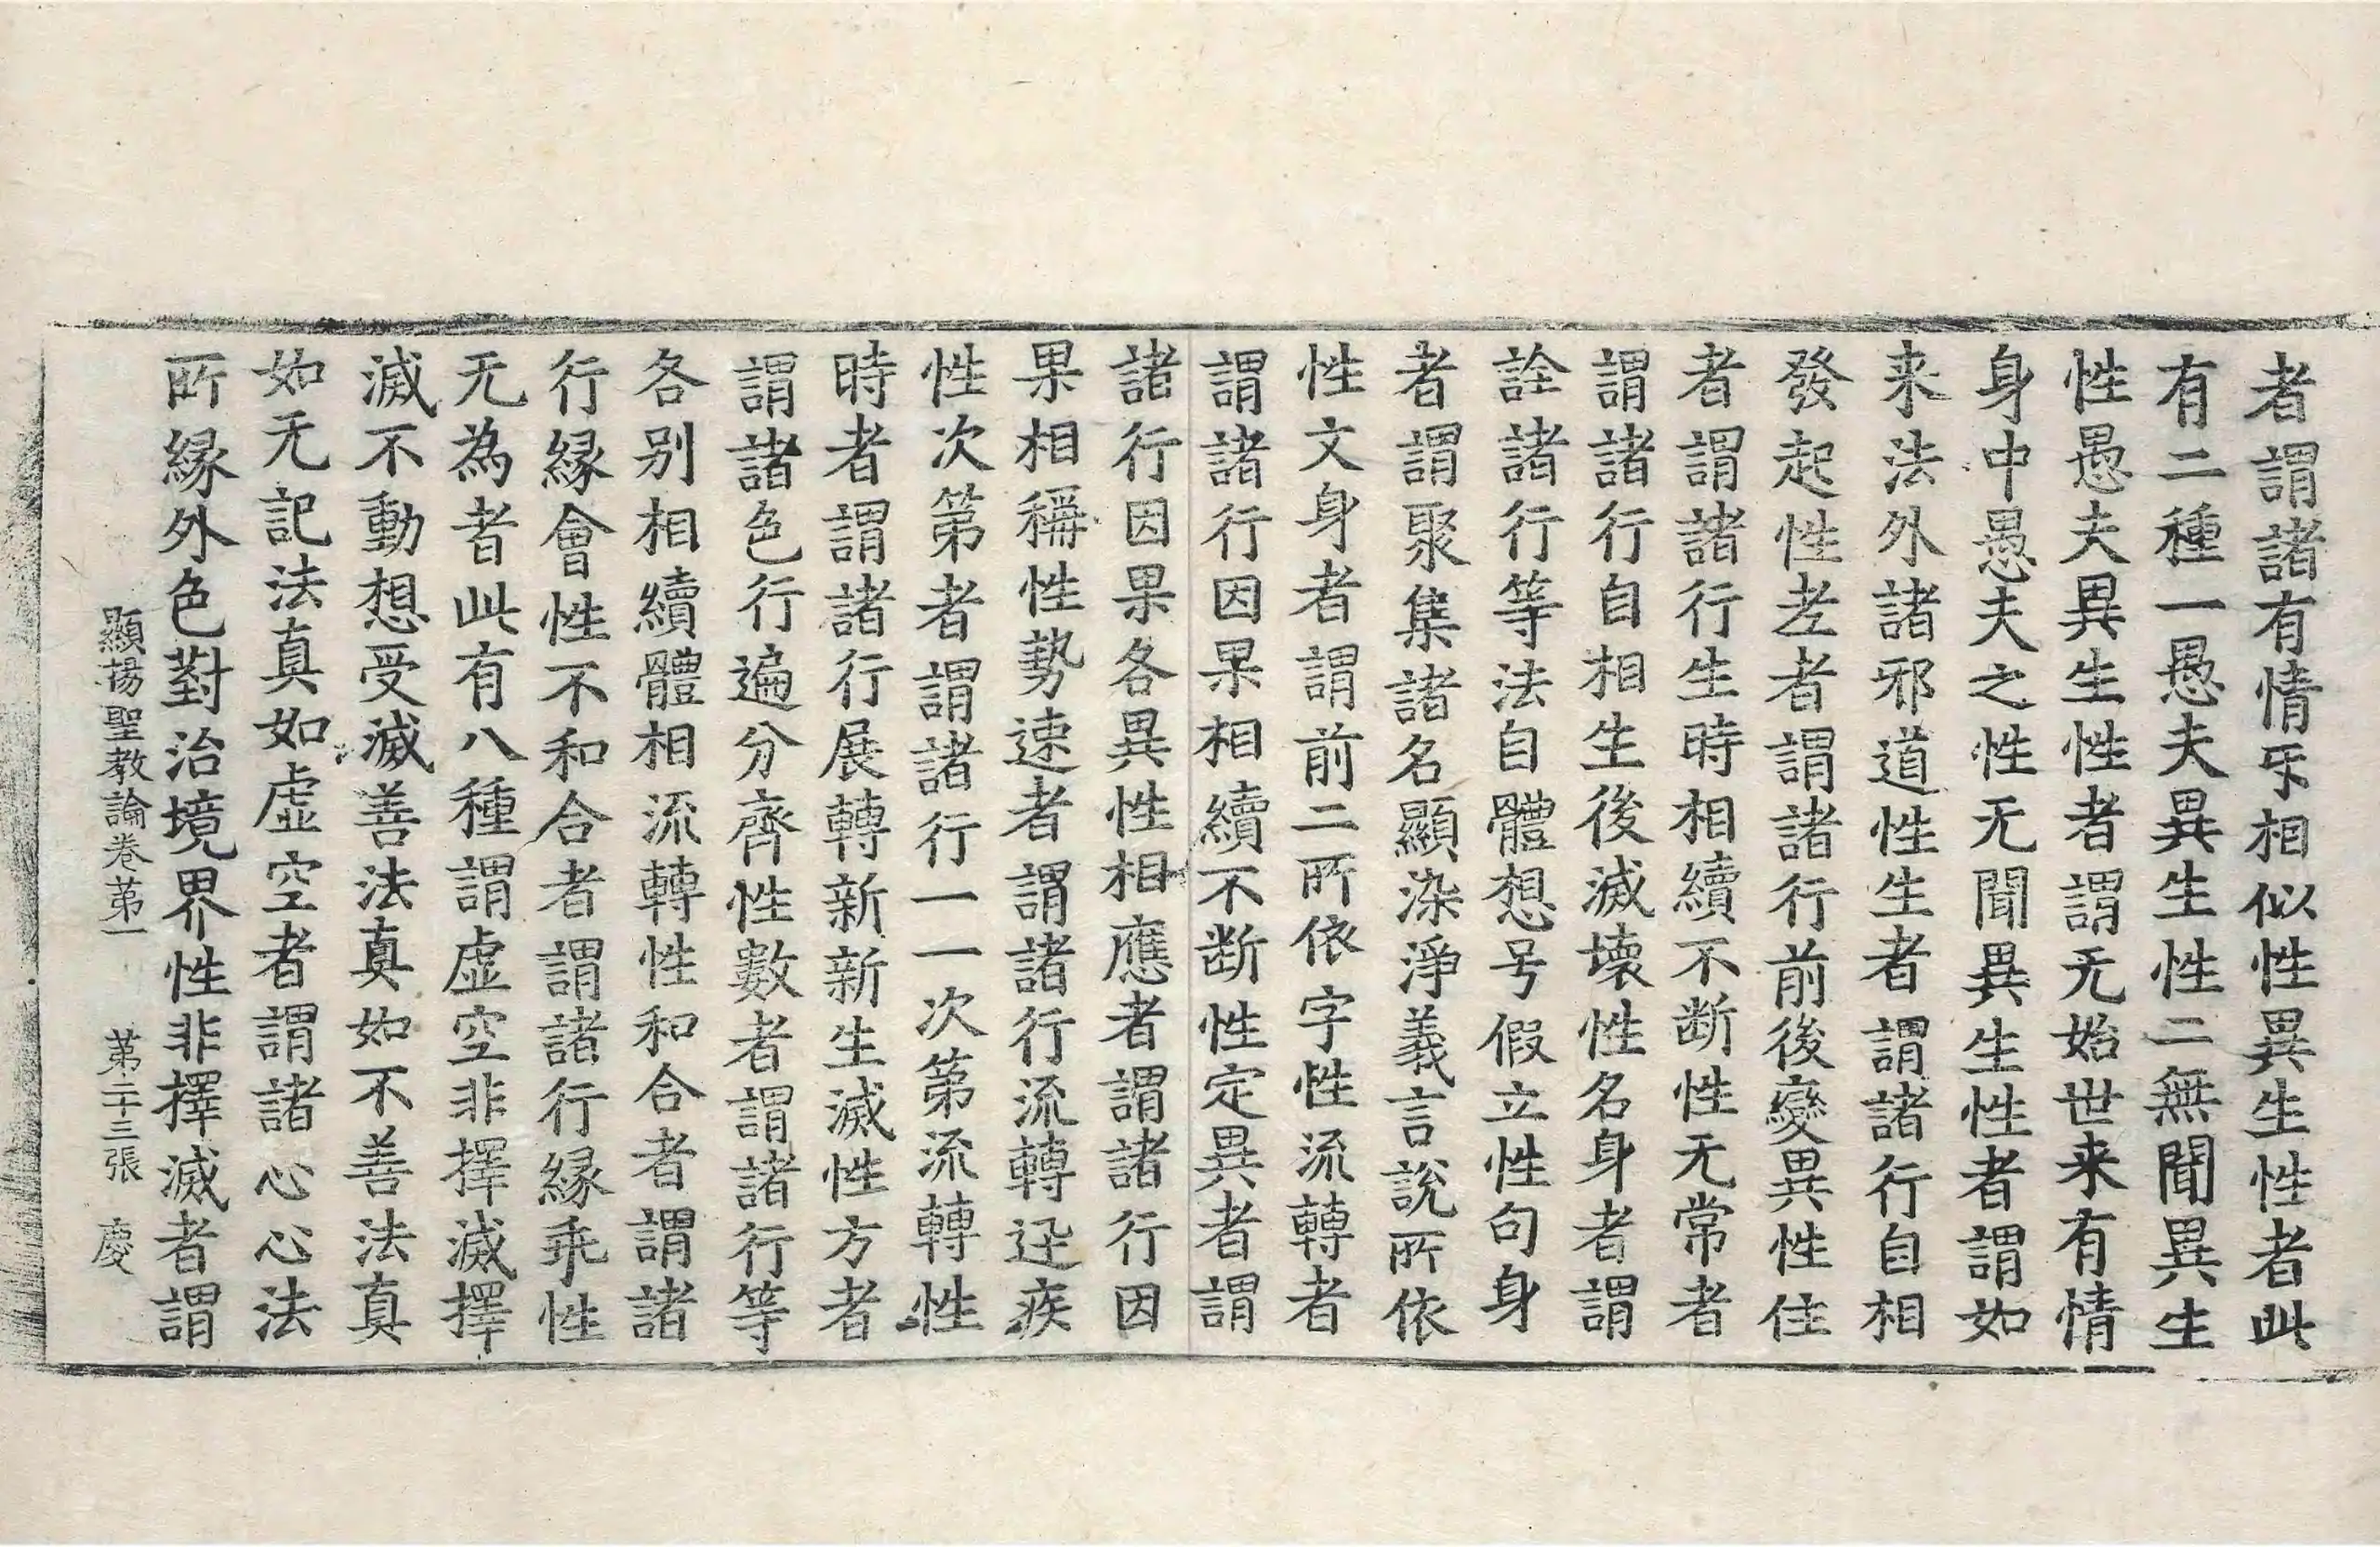 者謂諸有情互相似性異生性者此
有二種一愚夫異生性二無聞異生
性愚夫異生性者謂无始世来有情
身中愚夫之性无聞異生性者謂如
来法外諸邪道性生者謂諸行自相
發起性老者謂諸行前後變異性住
者謂諸行生時相續不断性无常者
謂諸行自相生後滅壞性名身者謂
詮諸行等法自體想号假立性句身
者謂聚集諸名顯染淨義言說所依
性文身者謂前二所依字性流轉者
謂諸行因果相續不断性定異者謂
諸行因果各異性相應者謂諸行因
果相稱性勢速者謂諸行流轉迅疾
性次第者謂諸行一一次第流轉性
時者謂諸行展轉新新生滅性方者
謂諸色行遍分齊性數者謂諸行等
各別相續體相流轉性和合者謂諸
行緣會性不和合者謂諸行緣乖性
无為者此有八種謂虛空非擇滅擇
滅不動想受滅善法真如不善法真
如无記法真如虛空者謂諸心心法
所緣外色對治境界性非擇滅者謂
顯揚聖教論卷第一 第二十三張 慶